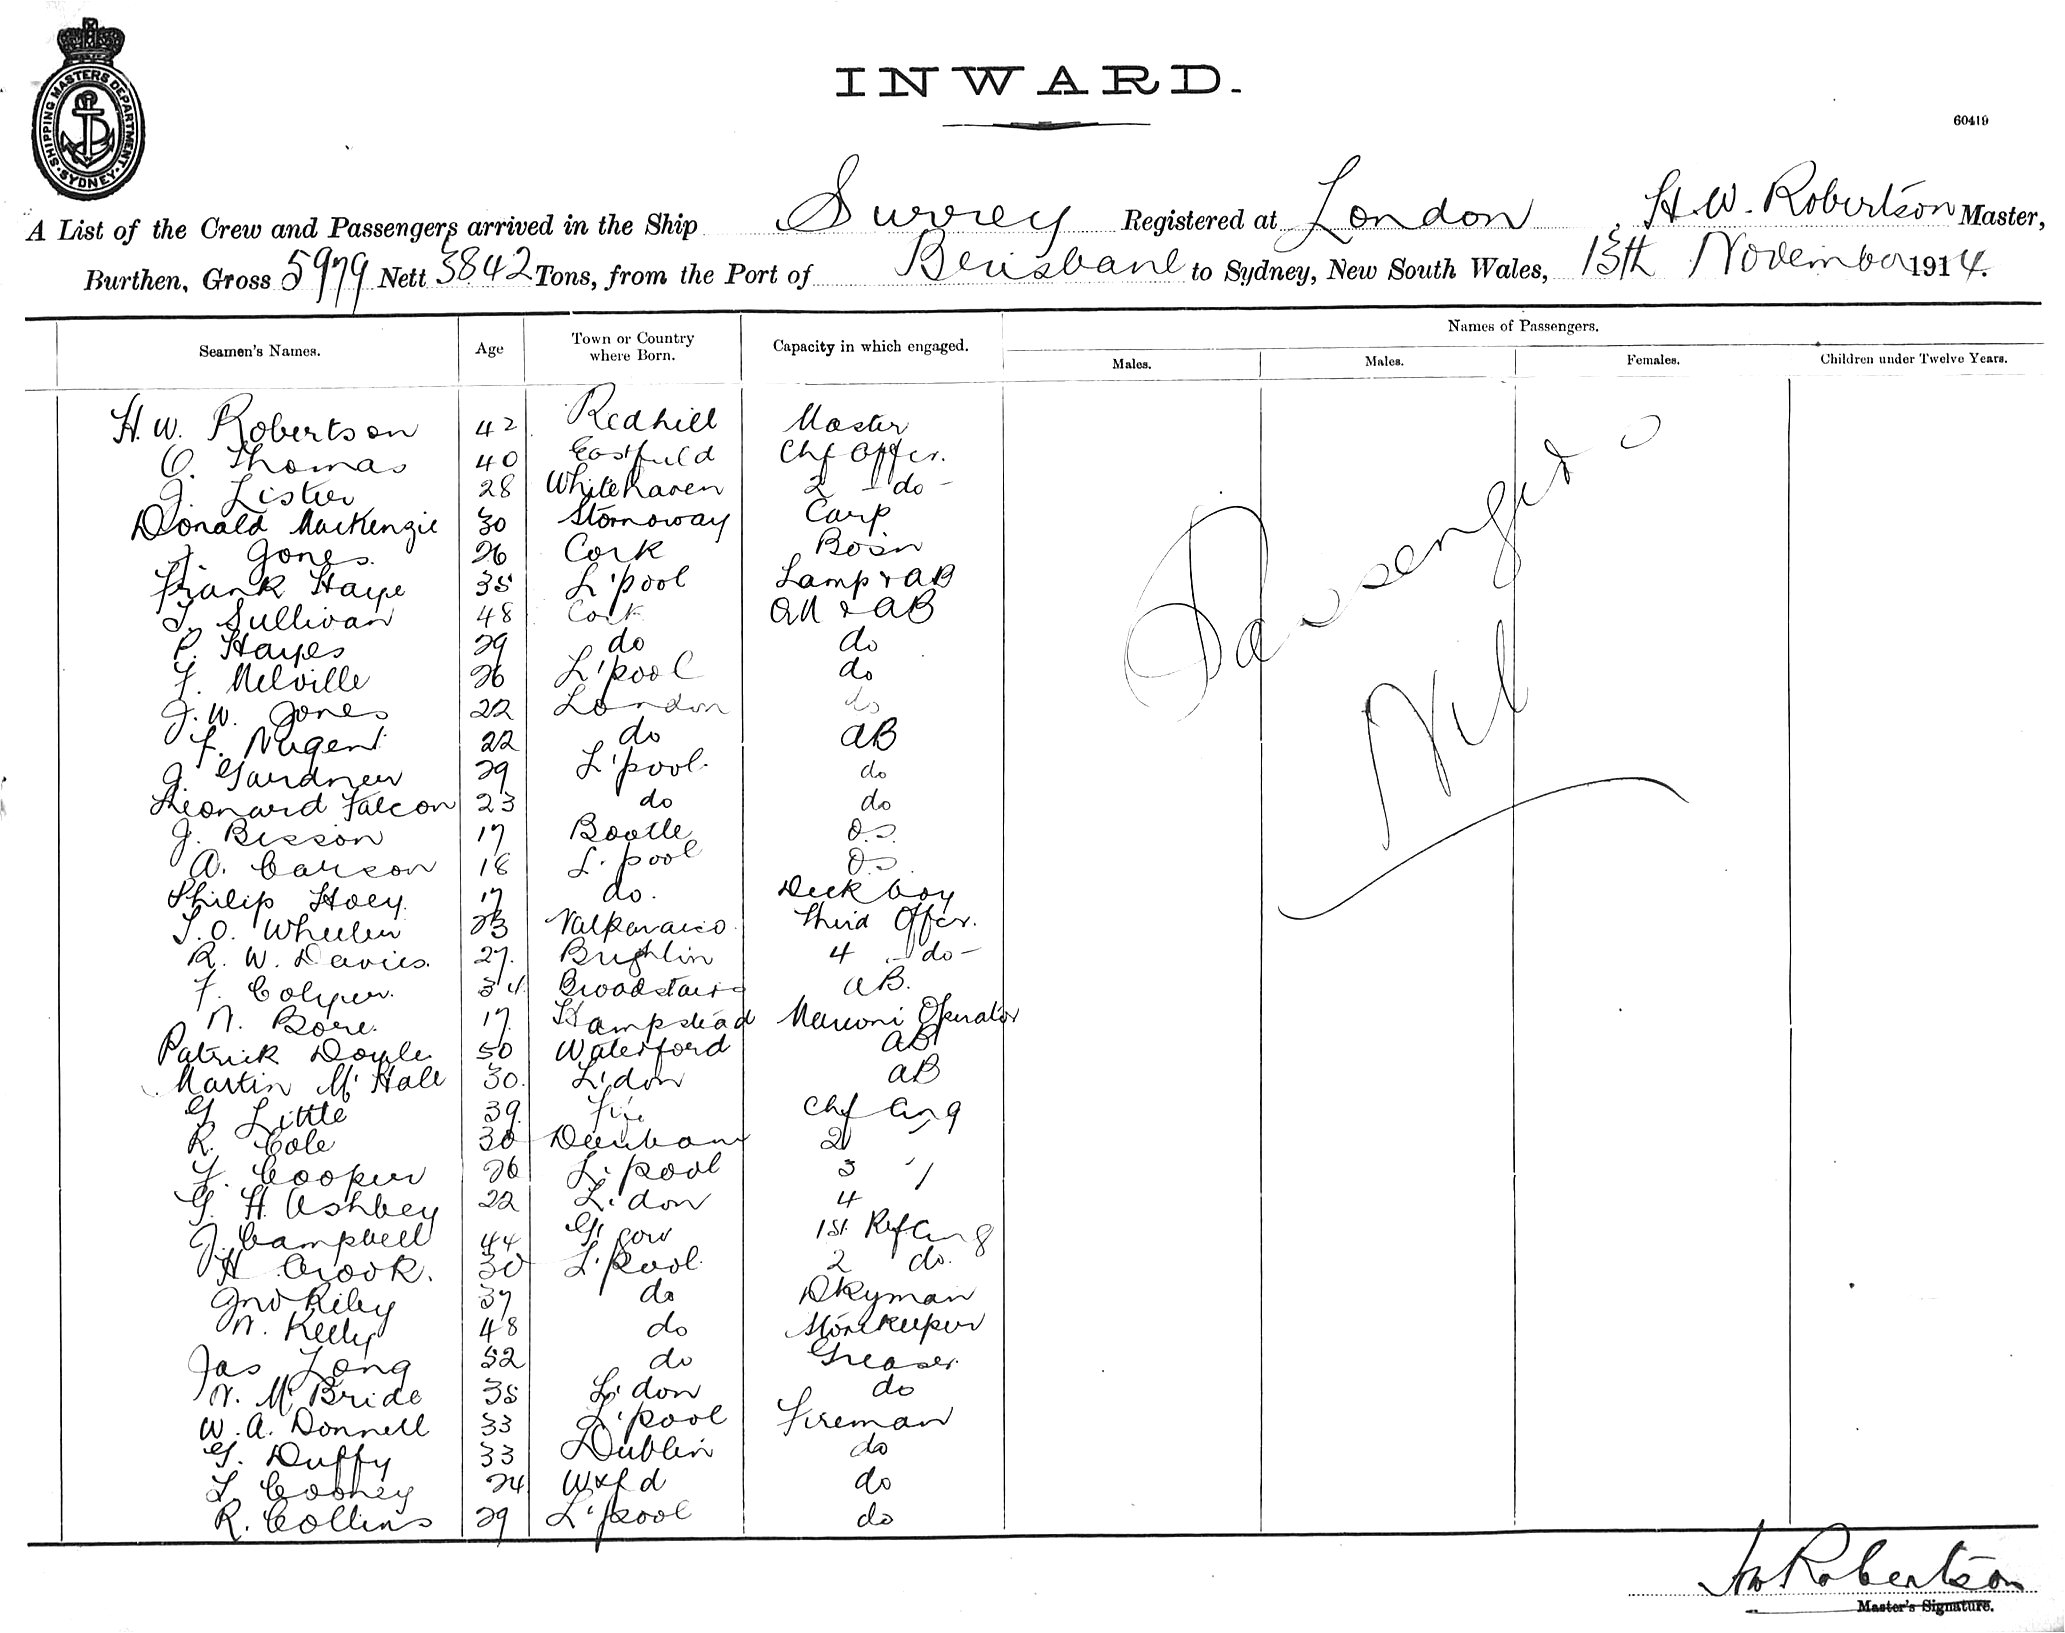 SHIPPING MASTERS DEPARTMENT SYDNEY
INWARD.
60419
A List of the Crew and Passengers arrived in the Ship Surrey Registered at London, H.W. Robertson Master,
Burthen, Gross 5979 Nett 3842 Tons, from the Port of Brisbane to Sydney, New South Wales, 13th November 1914.
Seamen's Names. Age Town or Country where Born. Capacity in which engaged. Names of Passengers.
Males. Males. Females. Children under Twelve Years.
H. W. Robertson 42 Redhill Master
O. Thomas 40 Chf Offcr.
J. Lister 28 Whitehaven 2 - do -
Donald MacKenzie 30 Stornoway Carp
J. Jones 26 Cork Bosn
Frank Haye 35 L'pool Lamp & AB
J. Sullivan 48 Cork QM & AB
P. Hayes 29 do do
F. Melville 26 L'pool do
J. W. Jones 22 London do
F. Nugent 22 do AB
J. Gardner 29 L'pool. do
Leonard Falcon 23 do do
J. Bisson 17 Bootle O.S.
A. Carson 18 L'pool O.S.
Philip Hoey 17 do. Deck boy
J. O. Wheeler 23 Valparaiso Third Offcr.
R. W. Davies. 27. Brightin 4 - do -
F. Colyer. 34 Broadstairs AB.
N. Bore. 17. Hampstead Marconi Operator
Patrick Doyle 50 Waterford AB
Martin McHale 30. L'don AB
G. Little 39. Fife Chf Eng
R. Cole 30 Durham 2
F. Cooper 26 L'pool 3 "
G. H. Ashbey 22 L'don 4
J. Campbell 44 G'gow 1st Ref Eng
H Crook. 30 L'pool. 2 do.
Jno Riley 37 do Dkyman
N. Kelly 48 do Storekeeper
Jas Long 52 do Greaser
N. McBride 35 L'don do
W. A. Donnell 33 L'pool Fireman
G. Duffy 33 Dublin do
L. Cooney 24 Wxfd do
R. Collins 29 L'pool do
Passengers
Nil
HW Robertson
Master's Signature.